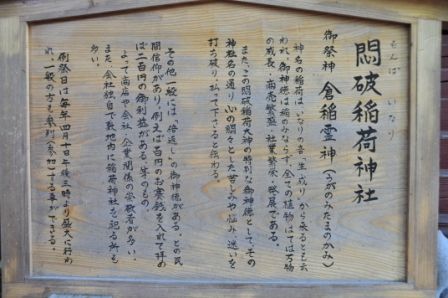 もんば いなり
悶破稲荷神社
御祭神 倉稲霊神(うがのみたまのかみ)
神名の稲荷は、いなりの音「生成り」から来るとも云
われ、御神徳は稲のみならず、全ての植物はては万物
の成長・商売繁盛・社業繁栄・発展である。
また、この悶破稲荷大神の特別な御神徳として、その
神社名の通り、心の悶々とした苦しみや悩み、迷いを
打ち破り、払って下さると伝わる。
その他一般には、「倍返し」の御神徳がある、との民
間信仰があり、例えば百円のお賽銭を入れて拝め
ば二百円の御利益がある、等のもの。
よって商店や会社・企業関係の崇敬者が多い。
また、会社独自で敷地内に稲荷神社を祀る所も
多い。
例祭日は毎年四月十日午後三時より盛大に行わ
れ、一般の方も参列(参加)する事ができる。